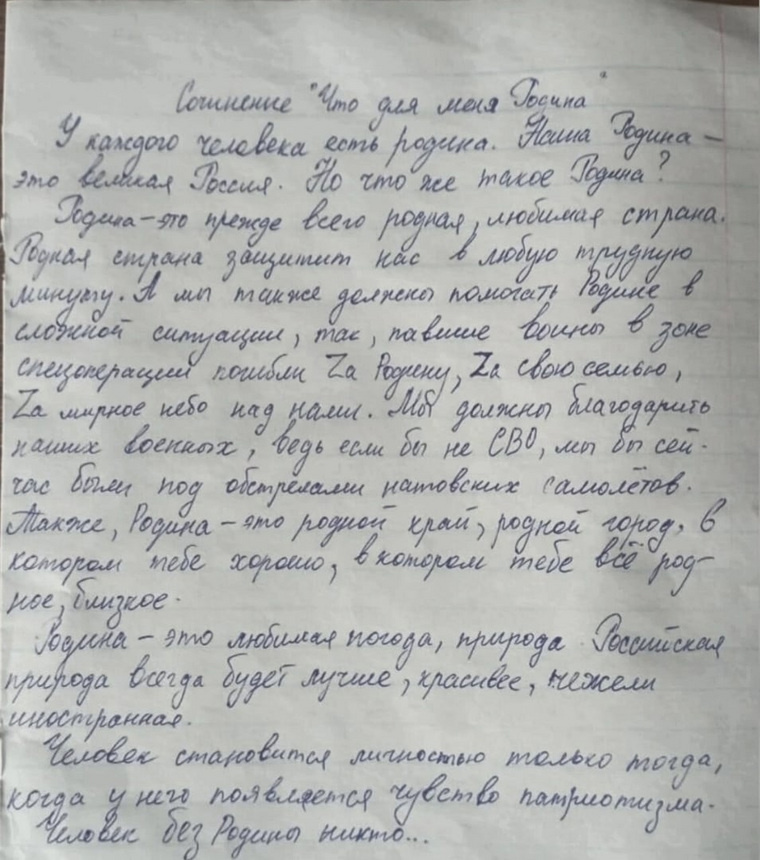 Сочинение "Что для меня Родина"
У каждого человека есть родина. Наша Родина –
это великая Россия. Но что же такое Родина?
Родина – это прежде всего родная, любимая страна.
Родная страна защитит нас в любую трудную
минуту. А мы также должны помогать Родине в
сложной ситуации, так, павшие воины в зоне
спецоперации погибли Zа Родину, Zа свою семью,
Zа мирное небо над нами. Мы должны благодарить
наших военных, ведь если бы не СВО, мы бы сей-
час были под обстрелами натовских самолётов.
Также, Родина – это родной край, родной город, в
котором тебе хорошо, в котором тебе всё род-
ное, близкое.
Родина – это любимая погода, природа. Российская
природа всегда будет лучше, красивее, нежели
иностранная.
Человек становится личностью только тогда,
когда у него появляется чувство патриотизма.
Человек без Родины никто...